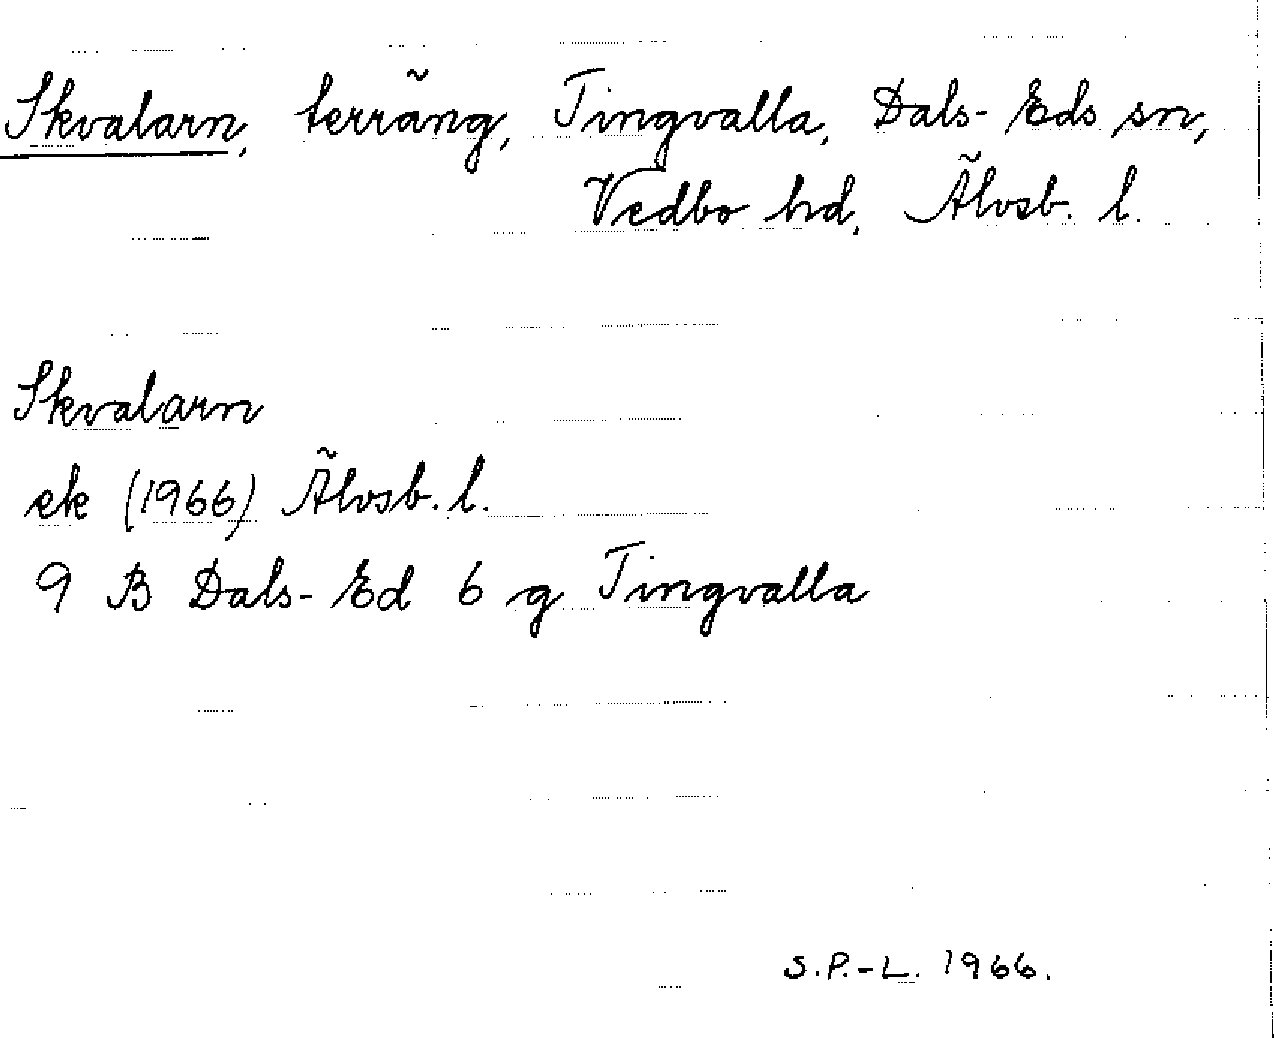 Skvalarn, terräng, Tingvalla, Dals-Eds sn,
Vedbo hd, Älvsb. l.
Skvalarn
ek (1966) Älvsb. l.
9 B Dals-Ed 6 g Tingvalla
S.P.-L. 1966.